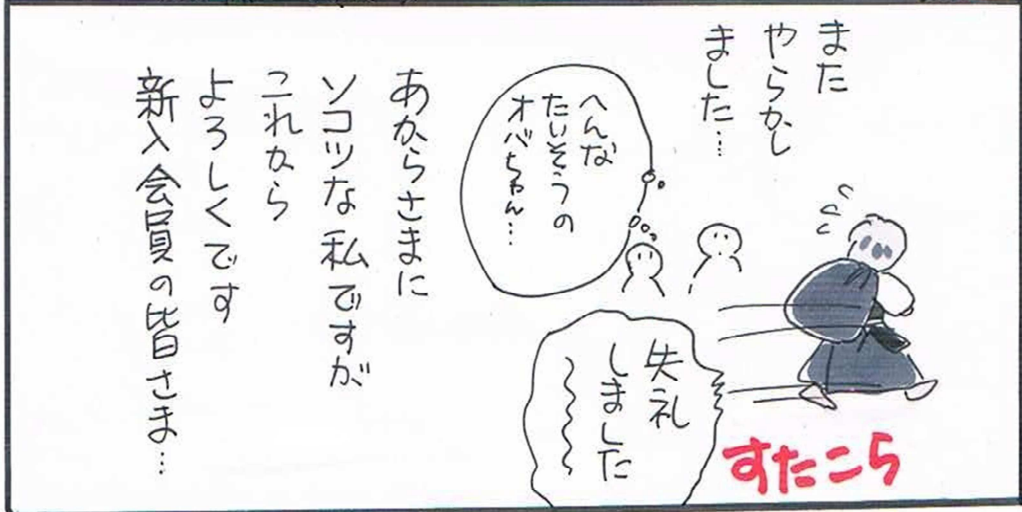 また
やらかし
ました…
へんな
たいそうの
オバちゃん…
失礼
しました
〜〜〜
すたこら
あからさまに
ソコツな私ですが
これから
よろしくです
新入会員の皆さま…